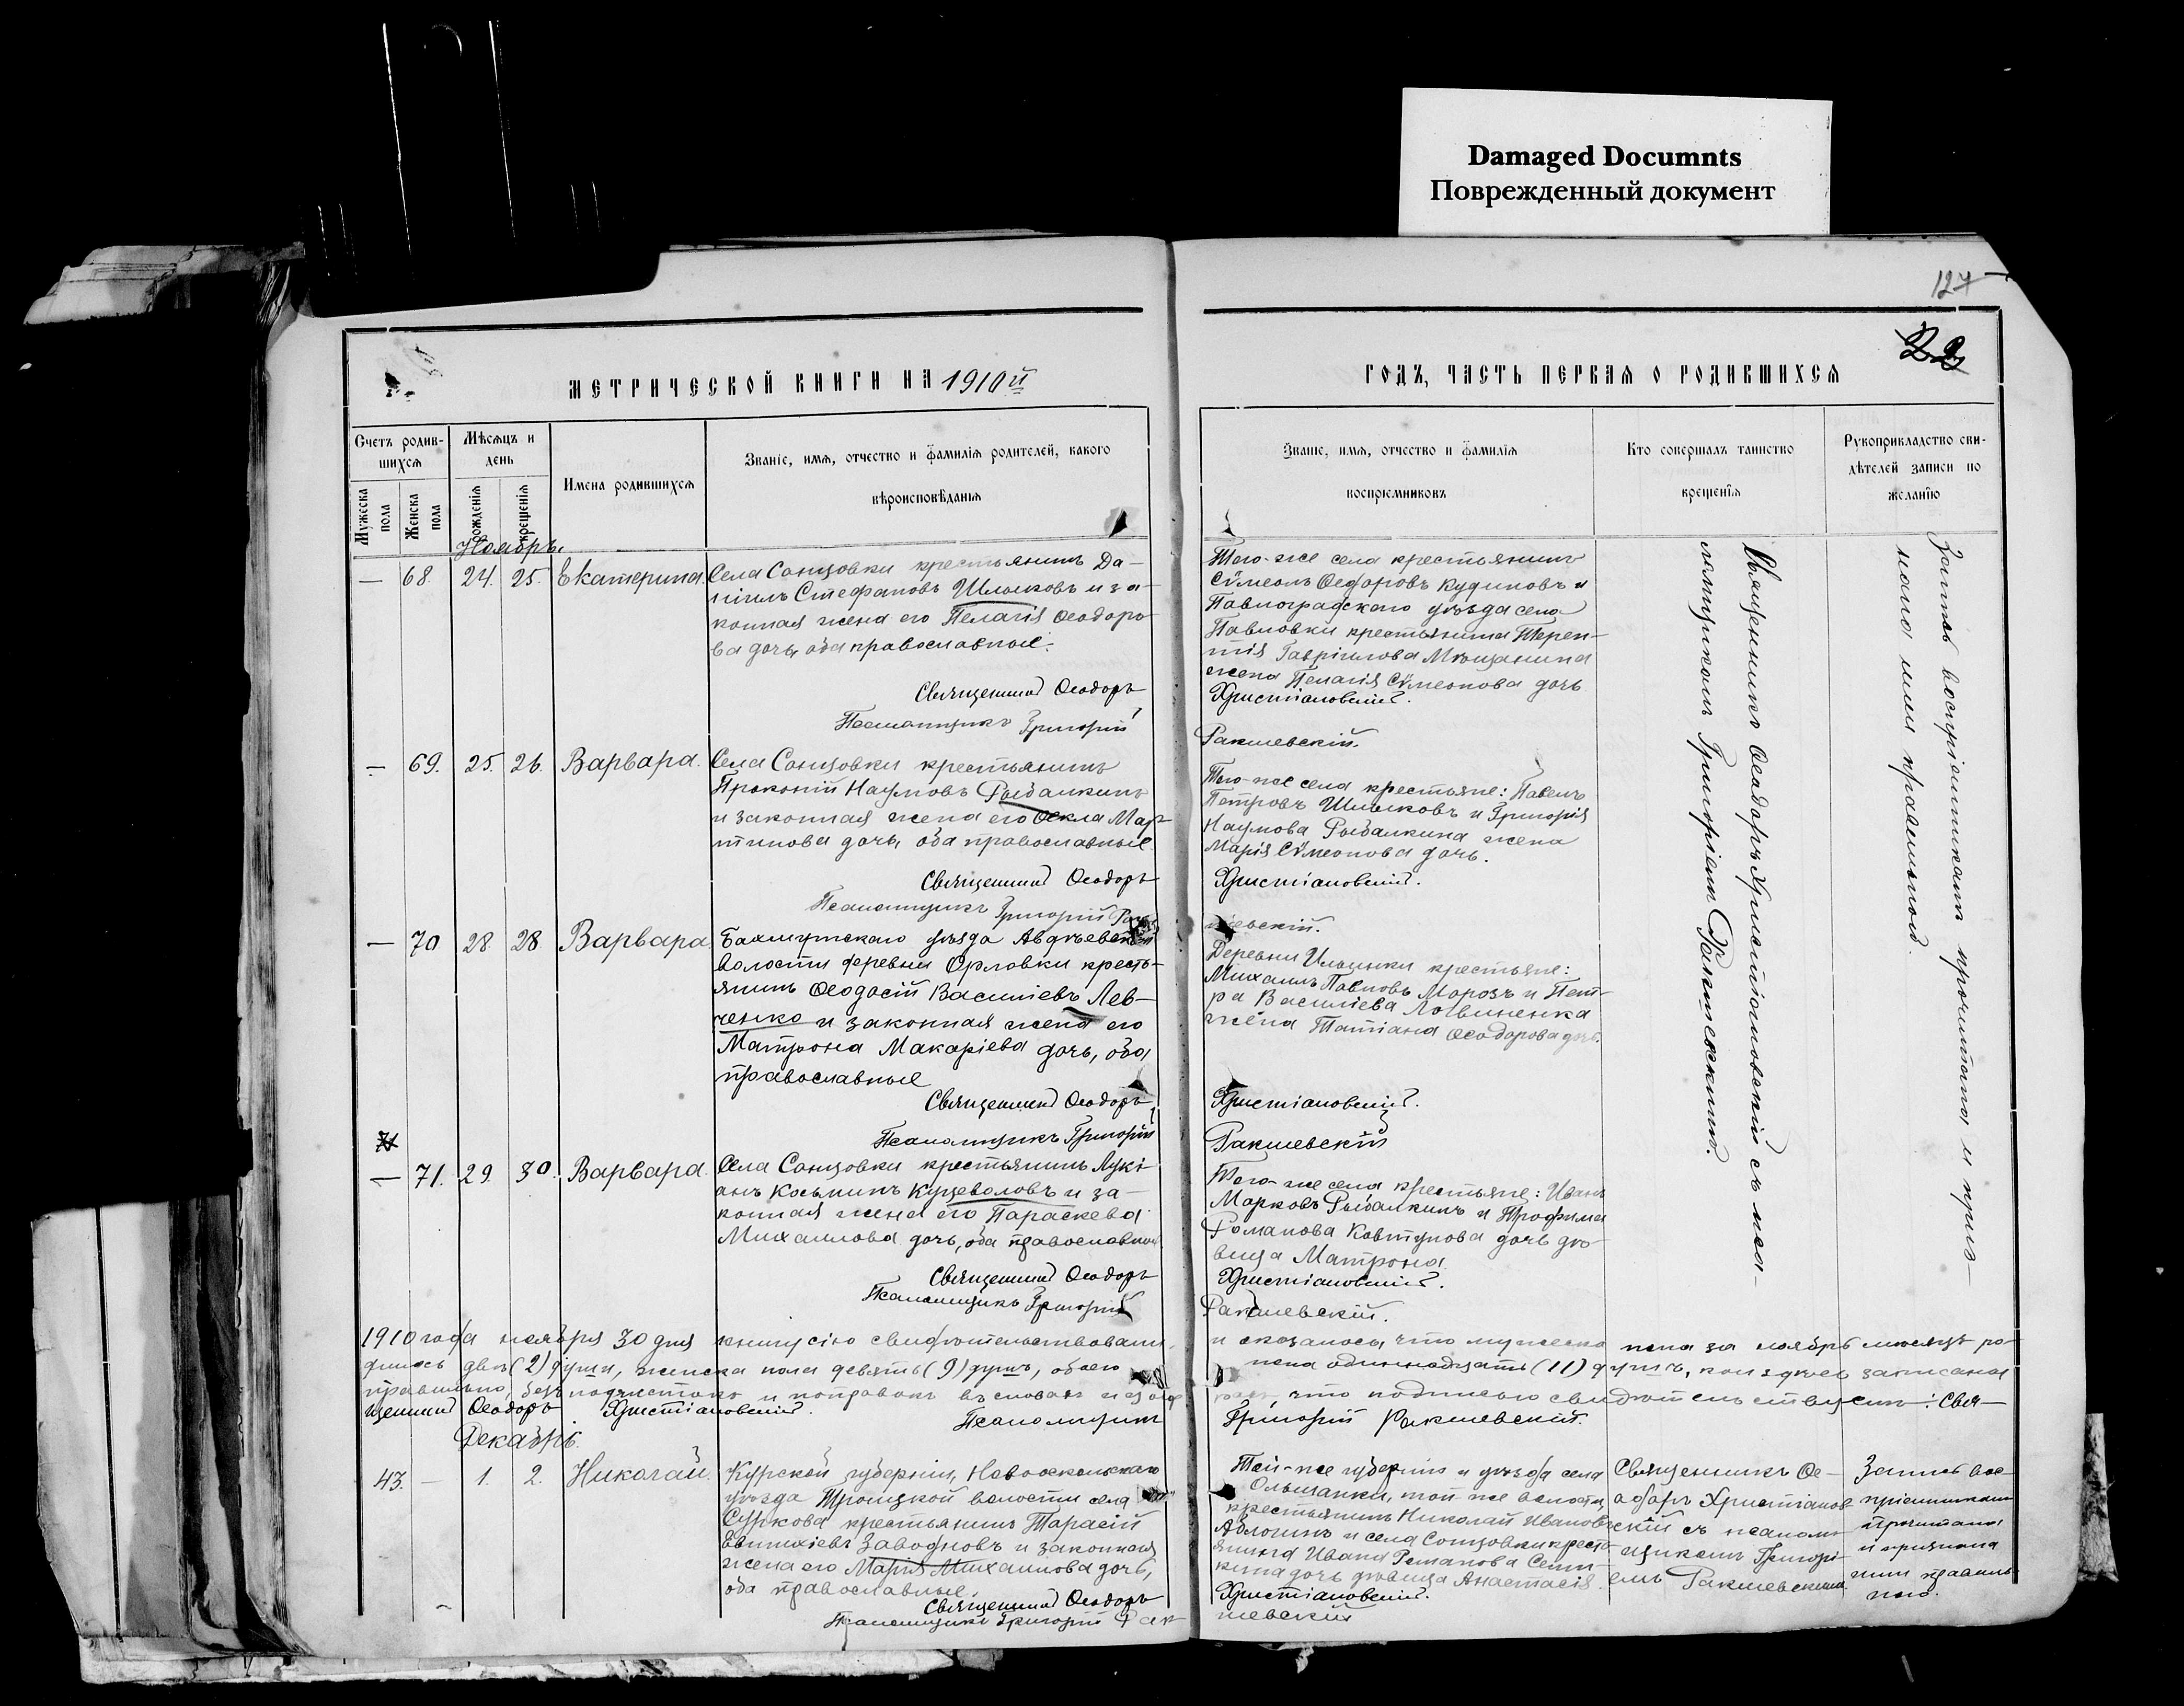 Damaged Documnts
Поврежденный документ
127
22
МЕТРИЧЕСКОЙ КНИГИ НА 1910й
ГОДЪ, ЧАСТЬ ПЕРВАЯ О РОДИВШИХСЯ
Счетъ родив-
шихся
Мужеска пола
Женска пола
Мѣсяцъ и
день
рожденія
крещенія
Имена родившихся
Званіе, имя, отчество и фамилія родителей, какого
вѣроисповѣданія
Званіе, имя, отчество и фамилія
воспріемниковъ
Кто совершалъ таинство
крещенія
Рукоприкладство сви-
дѣтелей записи по
желанію
Ноябрь.
— 68. 24. 25. Екатерина.
Села Сонцовки крестьянинъ Да-
ніилъ Стефановъ Шлыковъ и за-
конная жена его Пелагія Ѳеодоро
ва дочь, оба православные.
Священникъ Ѳеодоръ
Псаломщикъ Григорій
Того-же села крестьянинъ
Сѵмеонъ Ѳедоровъ Кудиновъ и
Павлоградскаго уѣзда села
Павловки крестьянина Терен-
тія Гавріилова Мѣщанина
жена Пелагія Сѵмеонова дочь
Христіановскій.
Ракшевскій.
Священникъ Ѳеодоръ Христіановскій съ псал-
ломщикомъ Григоріемъ Ракшевскимъ.
Запись воспріемникамъ прочитана и приз-
нана ими правильной.
— 69. 25. 26. Варвара.
Села Сонцовки крестьянинъ
Прокопій Наумовъ Рыбалкинъ
и законная жена его Ѳекла Мар
тинова дочь, оба православные.
Священникъ Ѳеодоръ
Псаломщикъ Григорій Рак
Того-же села крестьяне: Павелъ
Петровъ Шлыковъ и Григорія
Наумова Рыбалкина жена
Марія Сѵмеонова дочь.
Христіановскій.
шевскій.
— 70 28. 28. Варвара.
Бахмутскаго уѣзда Авдѣевской
волости деревни Орловки кресть-
янинъ Ѳеодосій Василіевъ Лев-
ченко и законная жена его
Матрона Макаріева дочь, оба
православные
Священникъ Ѳеодоръ
Псаломщикъ Григорій
Деревни Ильинки крестьяне:
Михаилъ Павловъ Морозъ и Пет-
ра Василіева Логвиненка
жена Татіана Ѳеодорова дочь.
Христіановскій.
Ракшевскій
— 71. 29. 30. Варвара.
Села Сонцовки крестьянинъ Лукі-
анъ Косьминъ Куцеволовъ и за-
конная жена его Параскева
Михаилова дочь, оба православные
Священникъ Ѳеодоръ
Псаломщикъ Григорій
Того-же села крестьяне: Иванъ
Марковъ Рыбалкинъ и Трофима
Романова Ковтунова дочь дѣ-
вица Матрона.
Христіановскій.
Ракшевскій.
1910 года ноября 30 дня книгу сію свидѣтельствовали, и оказалось, что мужеска пола за ноябрь мѣсяцъ ро-
дилось двѣ (2) души, женска пола девять (9) душъ, обоего пола одиннадцать (11) душъ, кои здѣсь записаны
правильно, безъ подчистокъ и поправокъ въ словахъ и что подписью свидѣтельствуемъ: Свя-
щенникъ Ѳеодоръ Христіановскій. Псаломщикъ Григорій Ракшевскій.
Декабрь.
43. — 1. 2. Николай.
Курской губерніи, Новооскольскаго
уѣзда Троицкой волости села
Суркова крестьянинъ Тарасій
Евтихіевъ Заводновъ и законная
жена его Марія Михаилова дочь,
оба православные.
Священникъ Ѳеодоръ
Псаломщикъ Григорій Рак
Той-же губерніи и уѣзда села
Ольшанки, той же волости,
крестьянинъ Николай Ивановъ
Аблогинъ и села Сонцовки кресть
янина Ивана Романова
кина дочь дѣвица Анастасія.
Христіановскій.
шевскій
Священникъ Ѳе-
одоръ Христіанов
скій съ псалом
щикомъ Григорі-
емъ Ракшевскимъ.
Запись вос-
пріемникамъ
прочитана
и признана
ими правиль
ною.